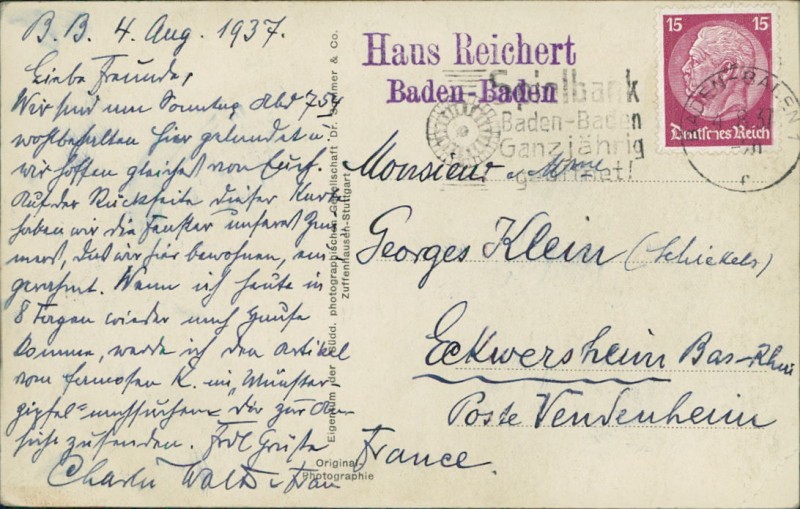 B. B. 4. Aug. 1937.
Liebe Freunde,
Wir sind am Sonntag Abd 7 54
wohlbehalten hier gelandet u.
wir hoffen gleiches von Euch.
Auf der Rückseite dieser Karte
haben wir die Fenster unseres Zim-
mers, das wir hier bewohnen, ein-
gerahmt. Wenn ich heute in
8 Tagen wieder nach Hause
komme, werde ich den Artikel
vom famosen K. im "Münster-
gipfel" nachsuchen u. Dir zur An-
sicht zusenden. Frdl Grüße
Charlie u. Frau
Eigentum der südd. photographischen Gesellschaft Dr. & Co.
Zuffenhausen-Stuttgart
Original-
Photographie
Haus Reichert
Baden-Baden
Spielbank
Baden-Baden
Ganzjährig
geöffnet!
15 15
Deutsches Reich
BADEN-BADEN
Monsieur u. Mme
Georges Klein (Schickele)
Eckwersheim Bas-Rhin
Poste Vendenheim
France.